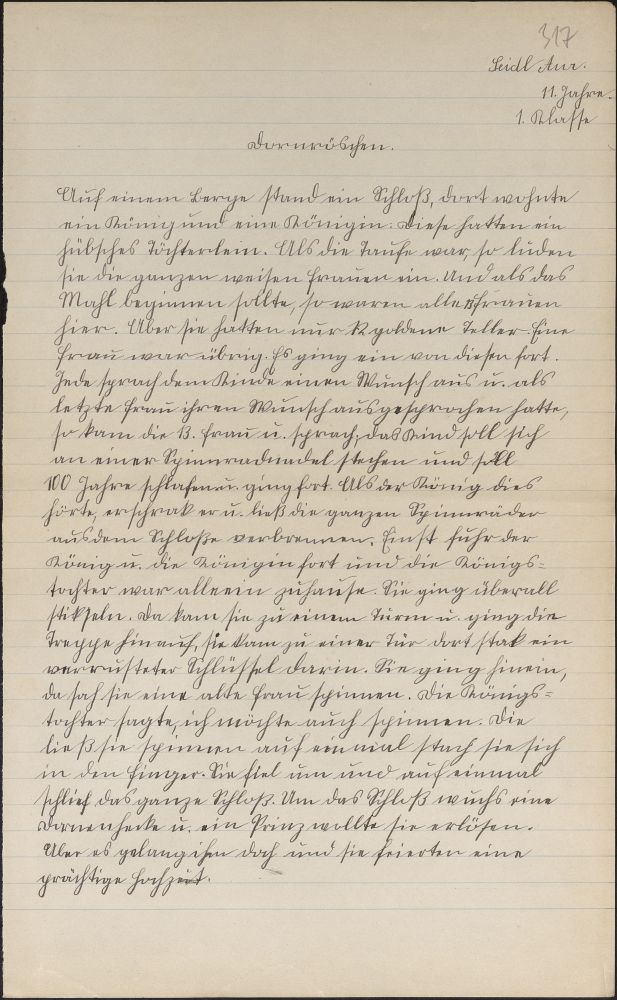 317
Seidl Anr.
11. Jahre.
1. Klasse
Dornröschen.
Auf einem Berge stand ein Schloß, dort wohnte
ein König und eine Königin. Diese hatten ein
hübsches Töchterlein. Als die Taufe war, so luden
sie die ganzen weisen Frauen ein. Und als das
Mahl beginnen sollte, so waren alle 13 Frauen
hier. Aber sie hatten nur 12 goldene Teller. Eine
Frau war übrig. Es ging ein von diesen fort.
Jede sprach dem Kinde einen Wunsch aus u. als
letzte Frau ihren Wunsch ausgesprochen hatte,
so kam die 13. Frau u. sprach, das Kind soll sich
an einer Spinnradnadel stechen und soll
100 Jahre schlafen u. ging fort. Als der König dies
hörte, erschrak er u. ließ die ganzen Spinnräder
aus dem Schloße verbrennen. Einst fuhr der
König u. die Königin fort und die Königs=
tochter war alleein zuhause. Sie ging überall
stikseln. Da kam sie zu einem Turm u. ging die
Treppe hinauf, sie kam zu einer Tür dort stak ein
verrusteter Schlüssel darin. Sie ging hinein,
da sah sie eine alte Frau spinnen. Die Königs=
tochter sagte, ich möchte auch spinnen. Die
ließ sie spinnen auf einmal stach sie sich
in den Finger. Sie fiel um und auf einmal
schlief das ganze Schloß. Um das Schloß wuchs eine
Dornenhecke u. ein Prinz wollte sie erlösen.
Aber es gelang ihm doch und sie feierten eine
prächtige Hochzeit.